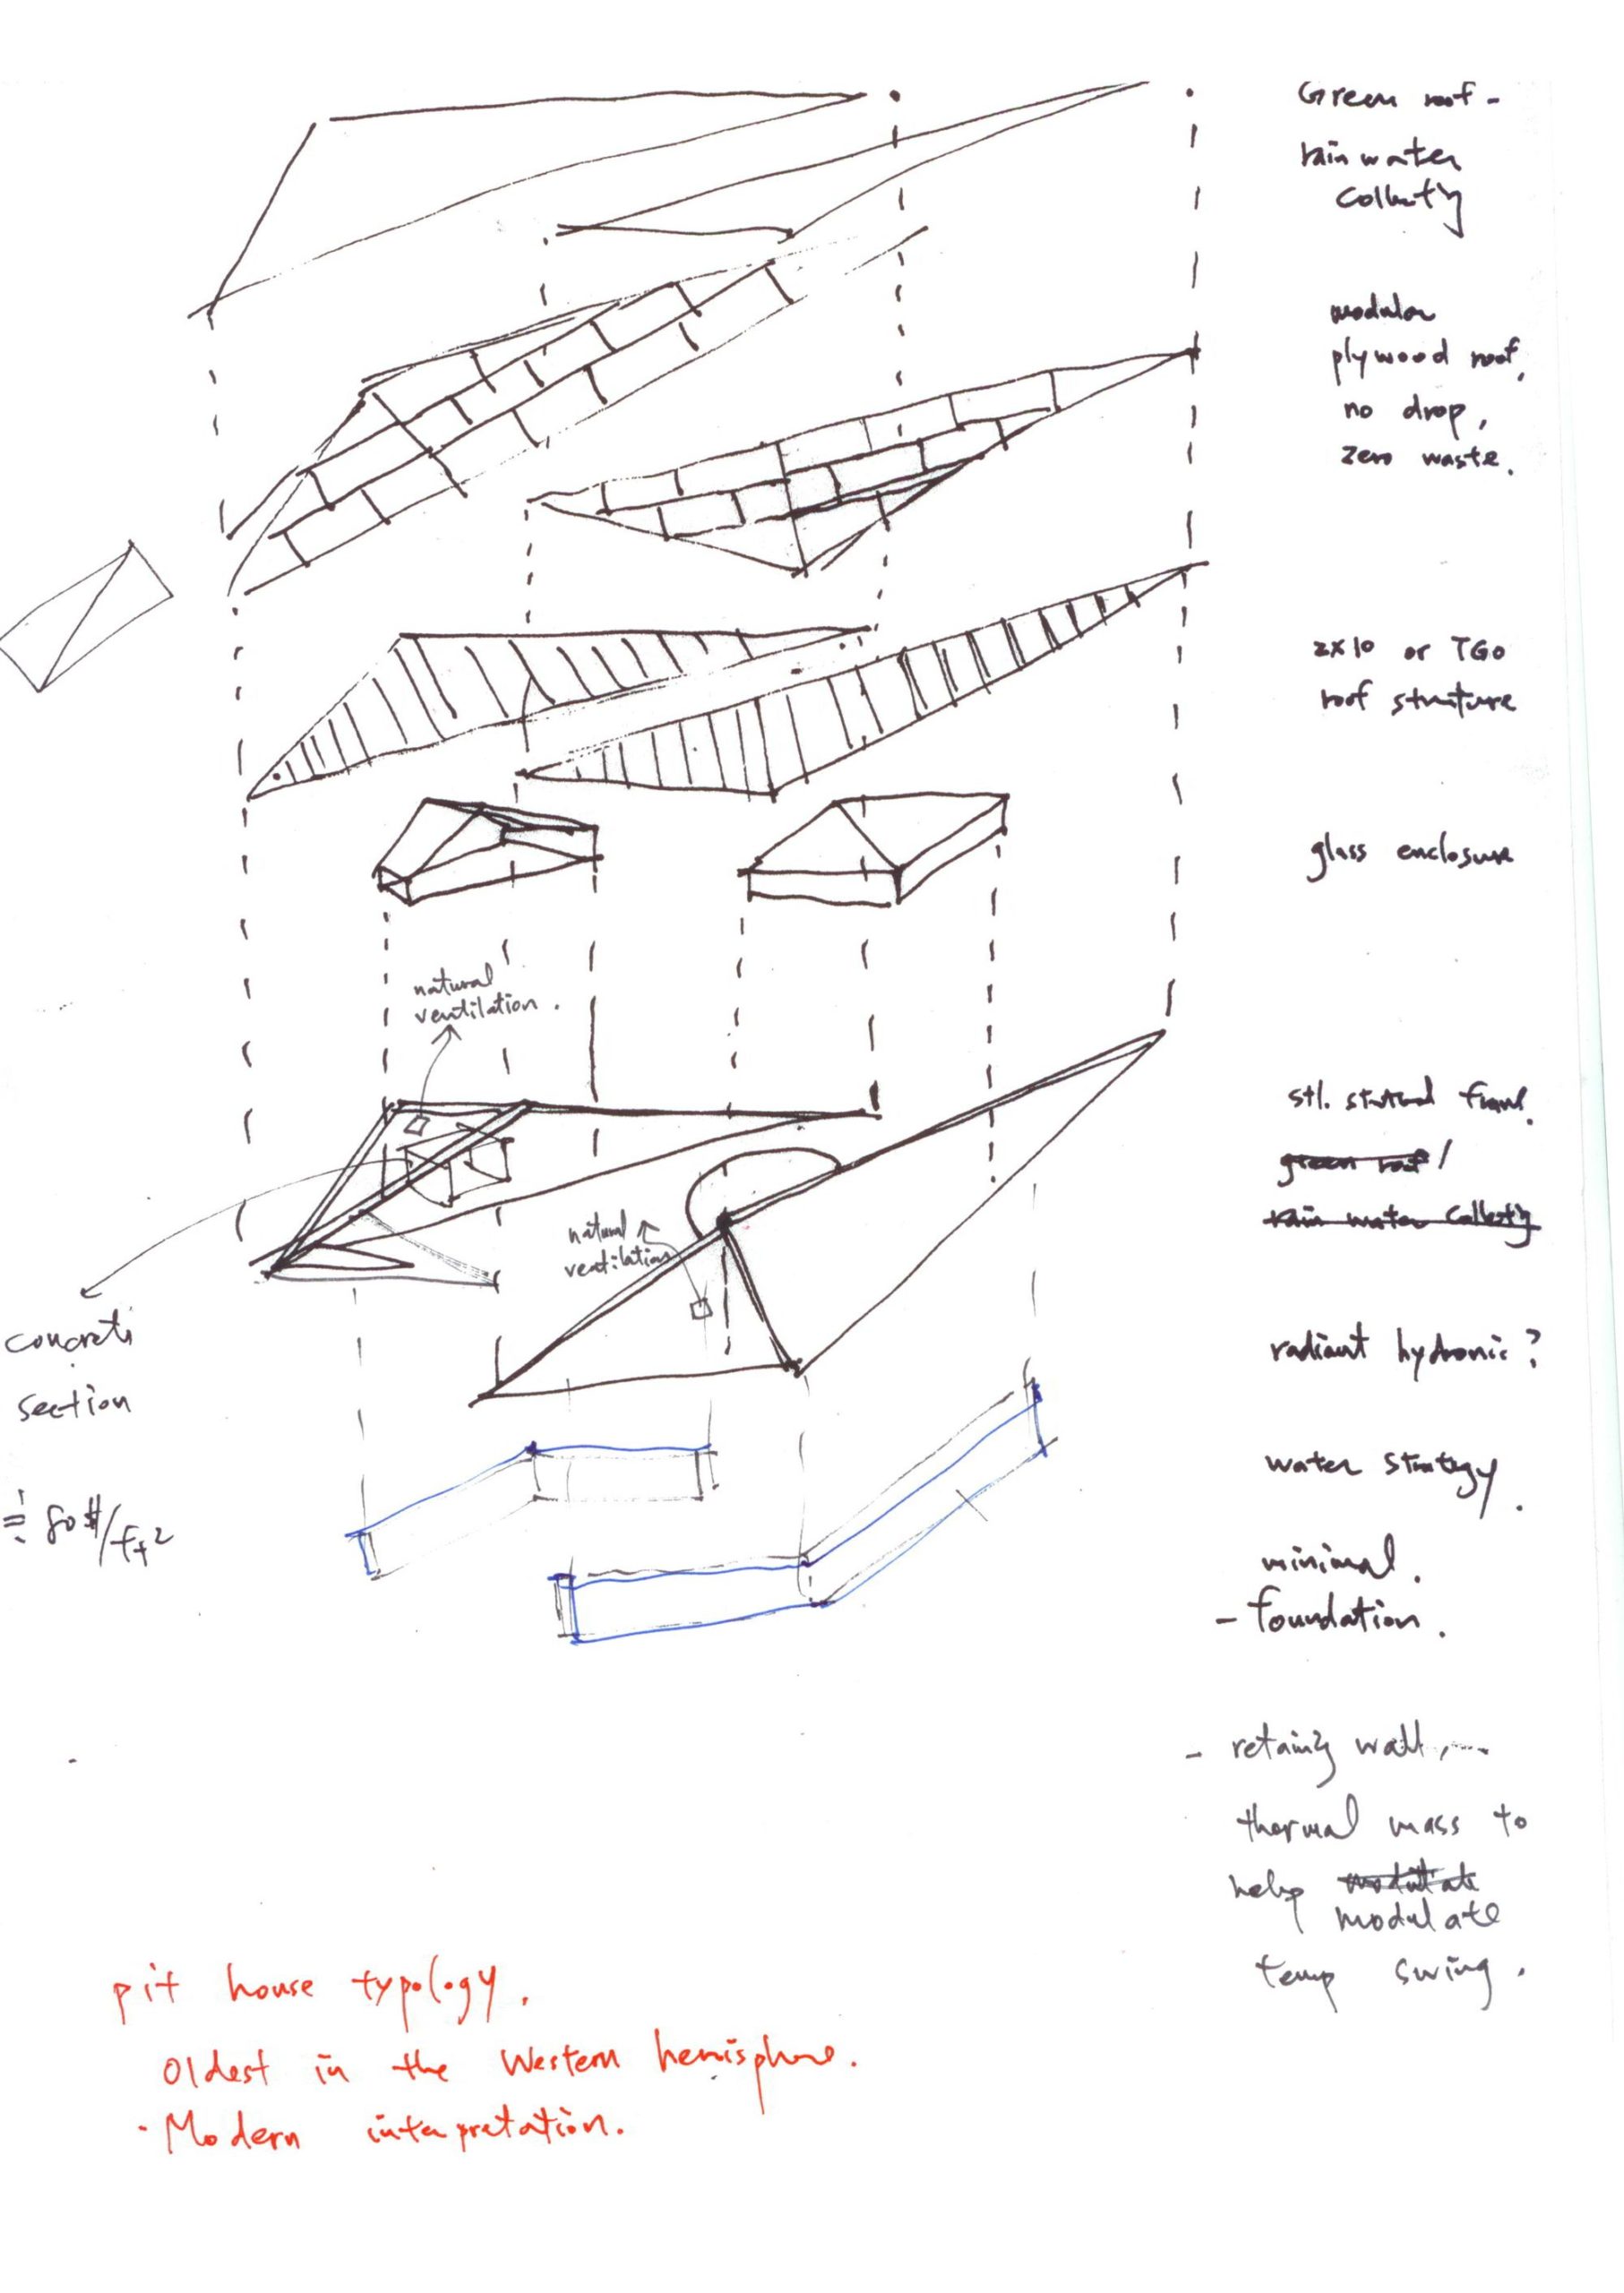 Green roof -
rain water
collectg
modular
plywood roof,
no drop,
zero waste.
2x10 or TGO
roof structure
glass enclosure
natural
ventilation.
stl. structural frame.
green roof /
rain water collectg
natural
ventilation
concrete
section
radiant hydronic ?
water strategy.
80 $/ft2
minimal.
- foundation.
- retaing wall,
thermal mass to
help modulate
modulate
temp swing.
pit house typology.
oldest in the Western hemisphere.
- Modern interpretation.